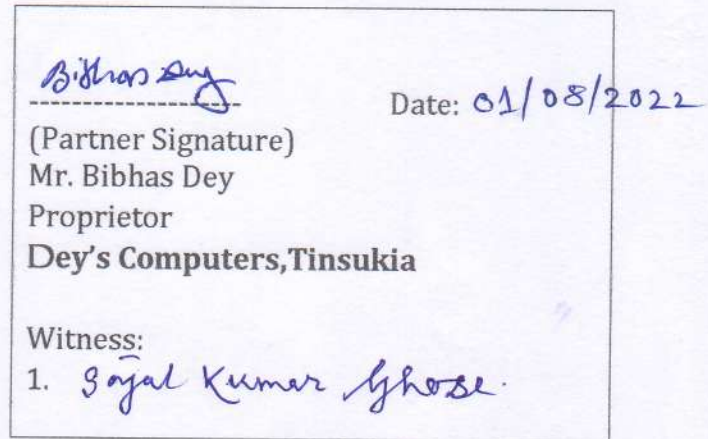 Bibhas Dey
Date: 01/08/2022
(Partner Signature)
Mr. Bibhas Dey
Proprietor
Dey's Computers,Tinsukia
Witness:
1. Sojal Kumar Ghose.